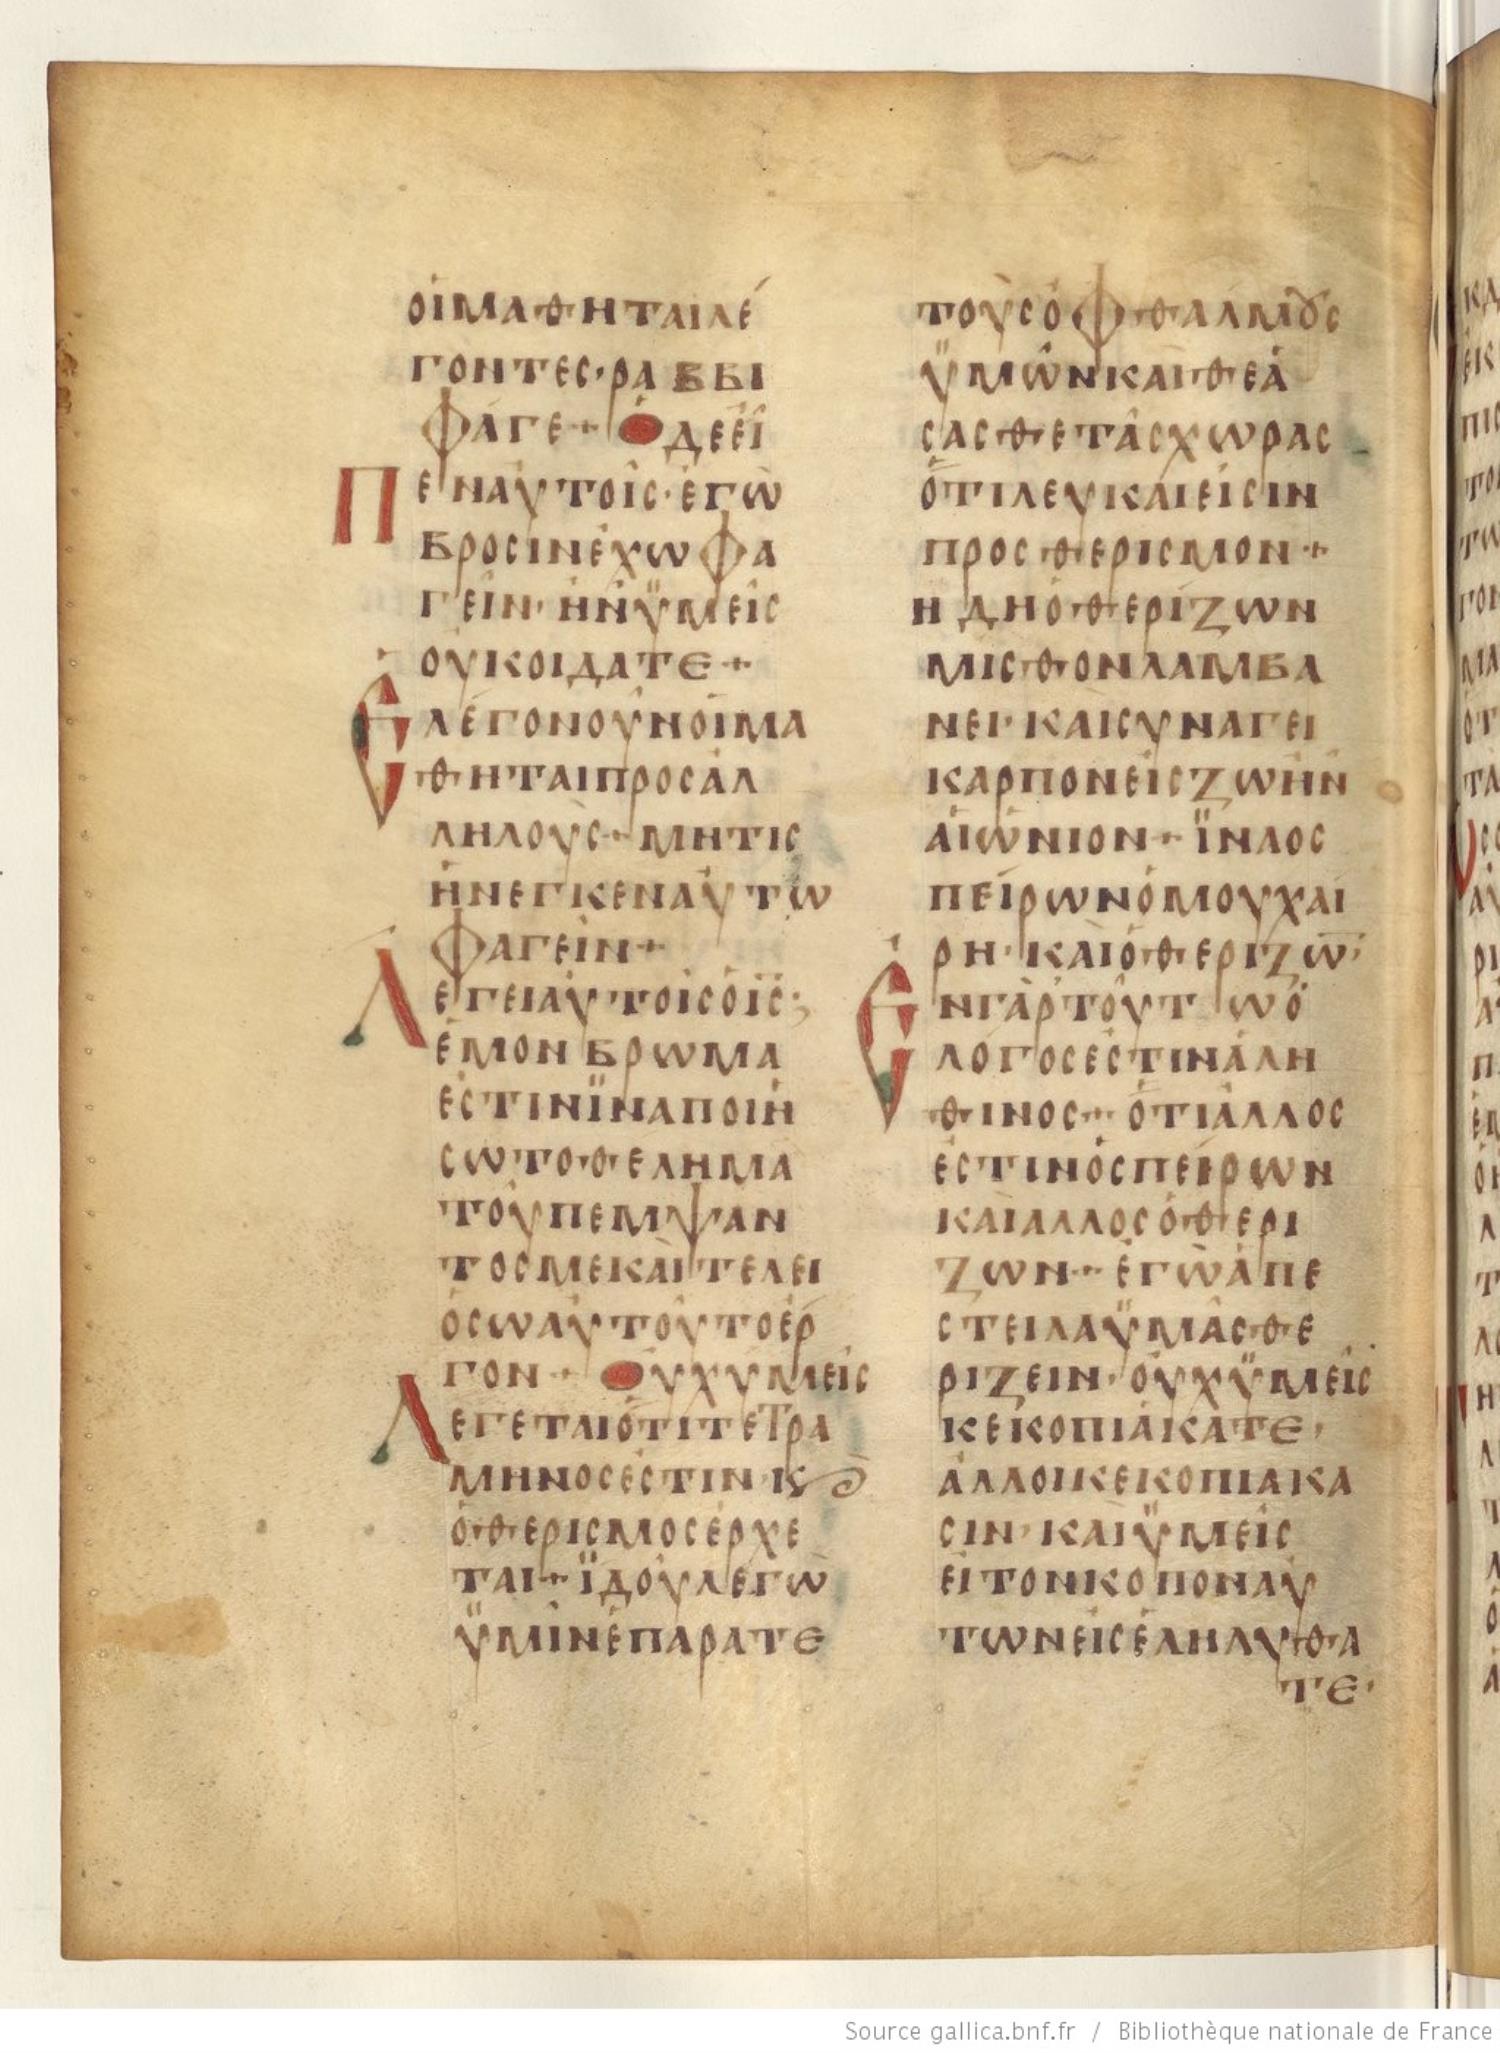 ὁἱμαθηταιλέ
γοντες·ραββι
φάγε+ Ὁδεεἶ
Πεναὐτοῖς·ἐγὼ
βροσινἔχωφα
γεῖν·ἡνϋμεῖς
οὐκοιδατε+
Ἐλέγονοὖνοἱμα
θηταιπροσἀλ
λήλους+μητις
ἠνεγκεναὐτω
φαγεῖν+
Λεγειαὐτοῖςὁϊς·
ἐμονβρωμα
ἐστινϊναποιή
σωτοθελημα
τοῦπεμψαν
τοσμεκαὶτελει
όσωαὐτοῦτοἔρ
γον+ Οὐχυμεῖς
Λεγεταιὅτιτετρα
μηνοσἐστιν·κ
ὁθερισμοσἔρχε
ται+ϊδοὺλεγὼ
ϋμῖνἐπαρατε
τοὺςὀφθαλμȣς
ϋμῶνκαιθεά
σασθετὰςχωρας
ὅτιλευκαιεἰσιν
προςθερισμον+
ηδηὁθερίζων
μισθονλαμβα
νει·καισυναγει
καρπονεἰςζωὴν
αἰώνιον+ϊναος
πείρωνὁμουχαι
ρη·καιὁθεριζω̅·
Ἐνγὰρτοὺτωὁ
λόγοσἐστινἀλη
θινος+ὅτιἄλλος
ἐστινὁςπείρων
καὶαλλοςὁθερι
ζων+ἐγὼἀπε
στειλαϋμᾶςθε
ριζειν·οὐχϋμεῖς
κεκοπιάκατε·
ἄλλοικεκοπιακα
σιν·καιϋμεῖς
εἰτονκοποναὐ
τωνεἰσἐληλυθα
τε·
Source gallica.bnf.fr / Bibliothèque nationale de France